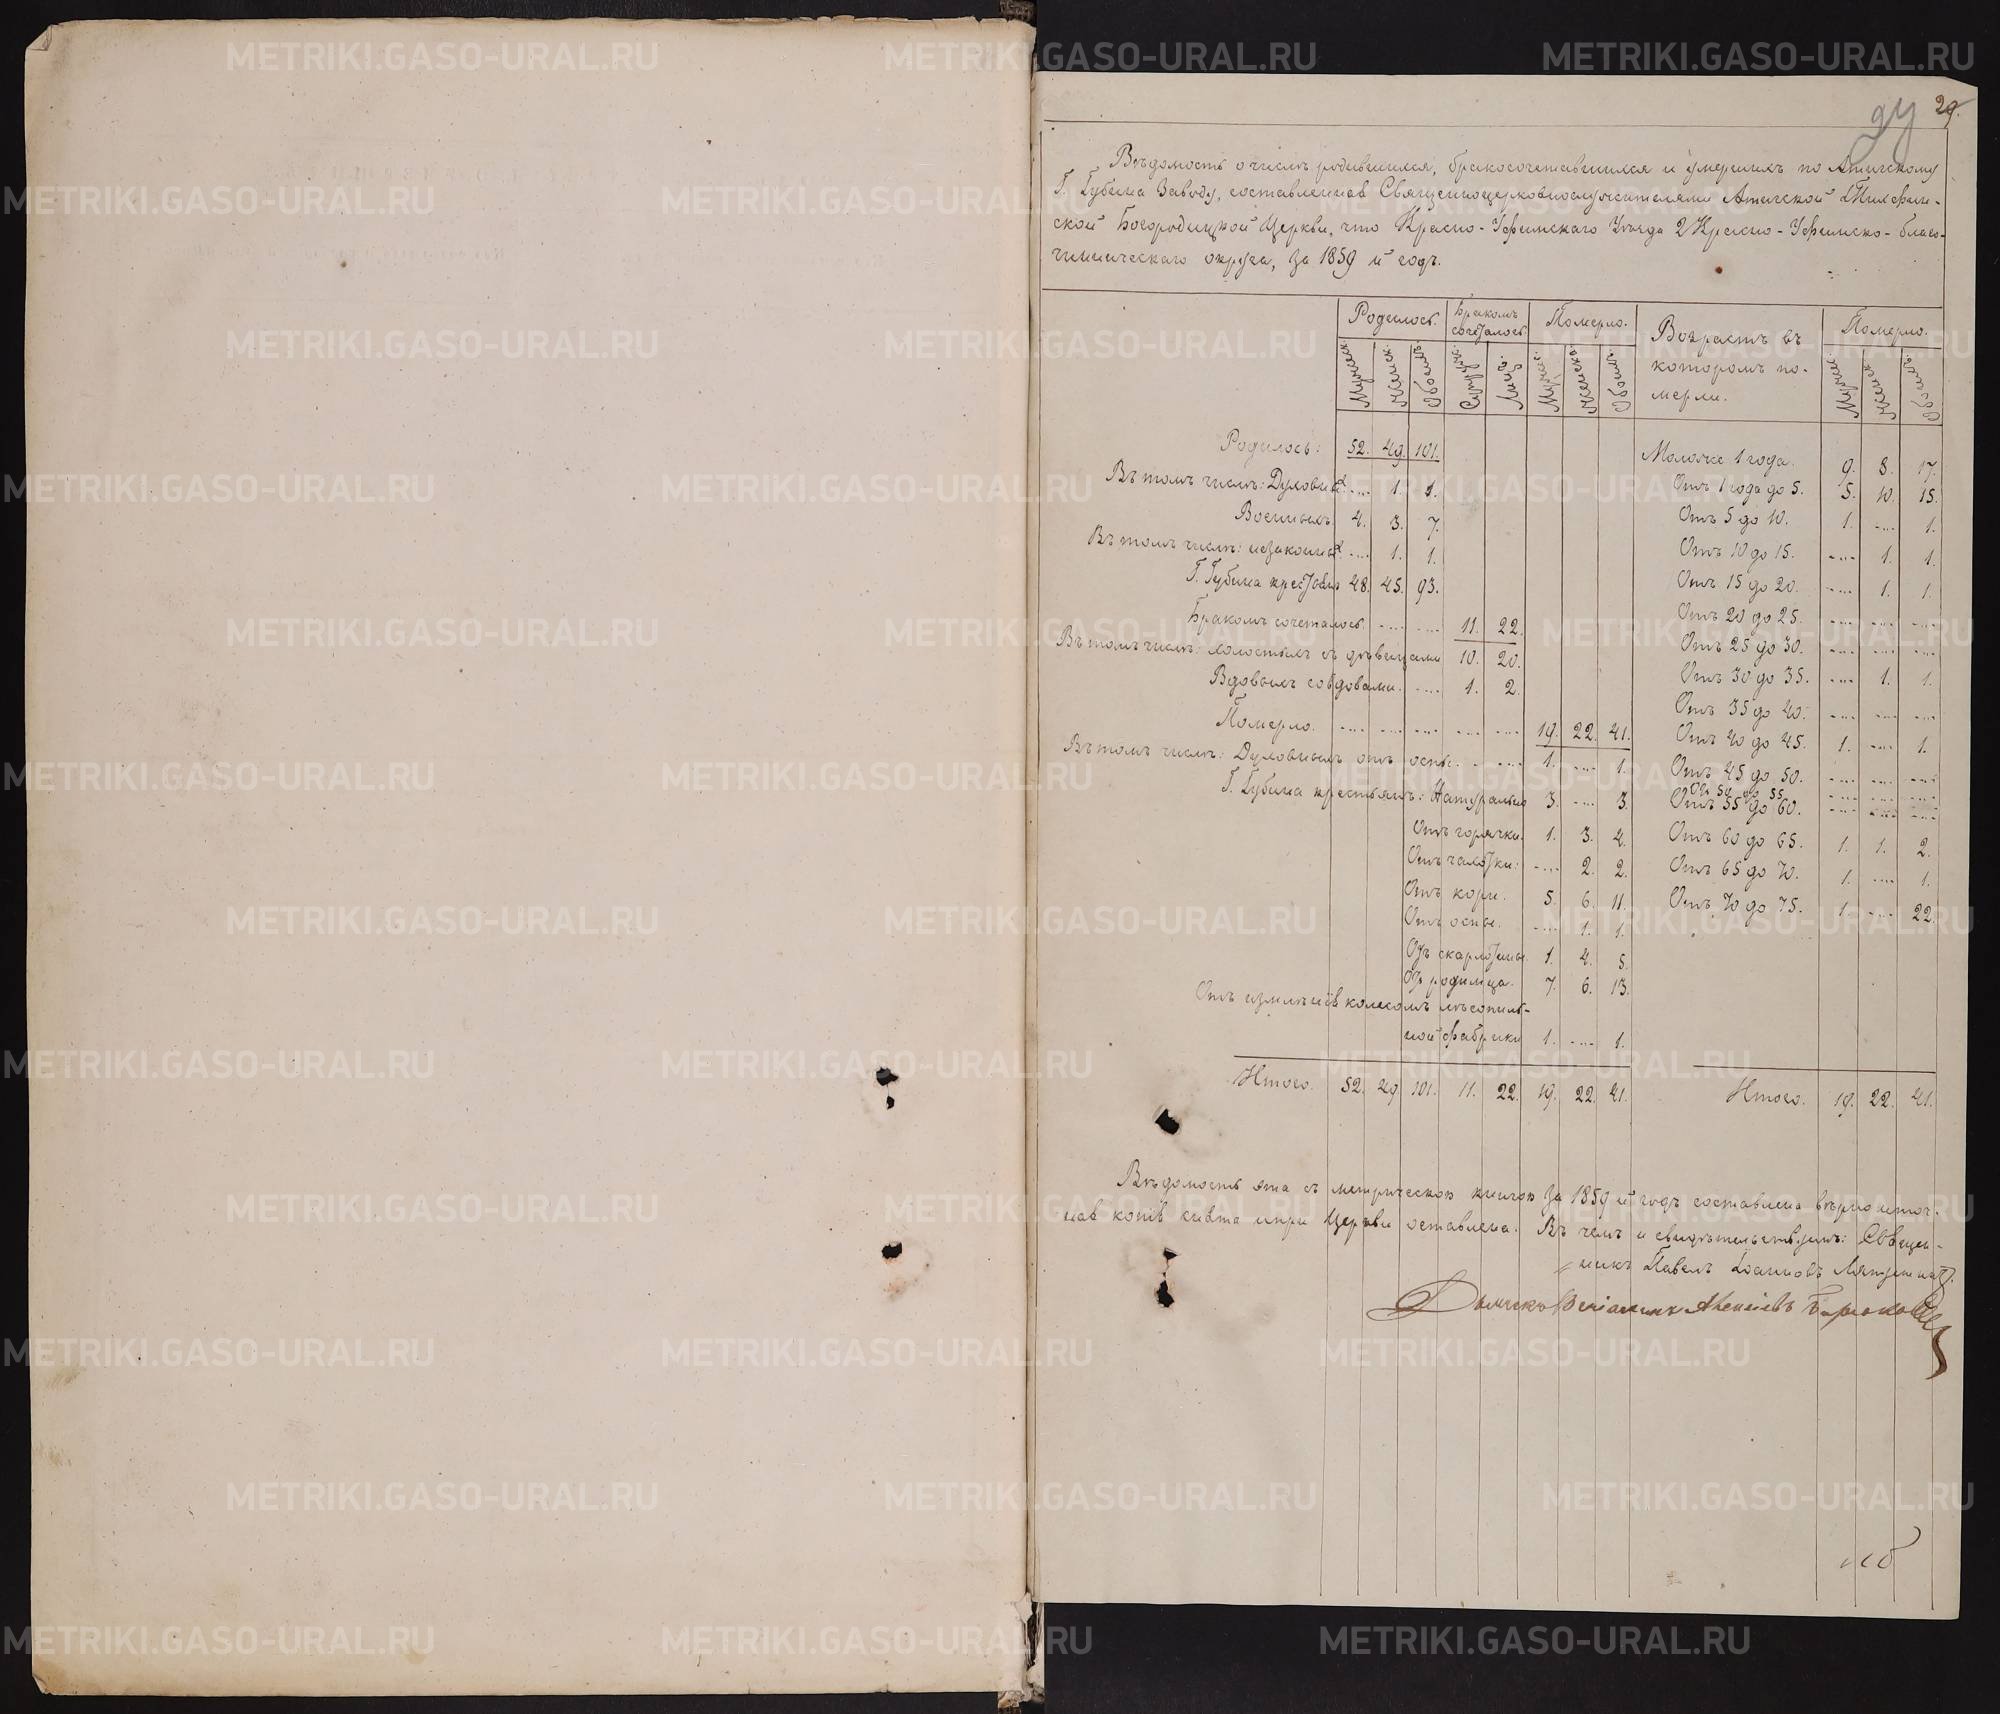 29.
Вѣдомость о числѣ родившихся, бракосочетавшихся и умершихъ по Атигскому
Г. Губина Заводу, составленная Священноцерковнослужителями Атигской Тихфин-
ской Богородицкой Церкви, что Красно-Уфимскаго Уѣзда 2 Красно-Уфимско-благо-
чинническаго округа, за 1859 й годъ.
Родилось. Бракомъ сочеталось Померло. Возрастъ въ которомъ по-мерли. Померло.
Мужеск: Женск: Обоихъ Супруж: Лицъ: Муж: Женска: Обоихъ: Мужеск: Женск: Обоихъ:
Родилось: 52. 49. 101. Моложе 1 года. 9. 8. 17.
Въ томъ числѣ: Духовных .... 1. 1. Отъ 1 года до 5. 5. 10. 15.
Военныхъ 4. 3. 7. Отъ 5 до 10. 1. .... 1.
Въ томъ числѣ: незаконных .... 1. 1. Отъ 10 до 15. .... 1. 1.
Г. Губина крестьян 48. 45. 93. Отъ 15 до 20. .... 1. 1.
Бракомъ сочеталось .... .... 11. 22. Отъ 20 до 25. .... .... ....
Въ томъ числѣ: холостыхъ съ дѣвицами 10. 20. Отъ 25 до 30. .... .... ....
Вдовыхъ со вдовами. .... 1. 2. Отъ 30 до 35. .... 1. 1.
Померло. .... .... .... .... .... 19. 22. 41. Отъ 35 до 40. .... .... ....
Отъ 40 до 45. 1. .... 1.
Въ томъ числѣ: Духовныхъ отъ оспы. .... .... 1. .... 1. Отъ 45 до 50. .... .... ....
Отъ 50 до 55 .... .... ....
Г. Губина крестьянъ: Натурально 3. .... 3. Отъ 55 до 60. .... .... ....
Отъ горячки. 1. 3. 4. Отъ 60 до 65. 1. 1. 2.
Отъ чахотки: .... 2. 2. Отъ 65 до 70. 1. .... 1.
Отъ кори. 5. 6. 11. Отъ 70 до 75. 1. .... 22.
Отъ оспы. .... 1. 1.
Отъ скарлотины. 1. 4. 5.
Отъ родимца. 7. 6. 13.
Отъ колесомъ лѣсопиль-
ной фабрики 1. .... 1.
Итого. 52. 49. 101. 11. 22. 19. 22. 41. Итого. 19. 22. 41.
Вѣдомость эта съ метрическою книгою за 1859 й годъ составлена вѣрно и точ-
ная копія снята и при Церкви оставлена. Въ чемъ и свидѣтельствуемъ: Священ-
никъ Павелъ Іоанновъ
METRIKI.GASO-URAL.RU